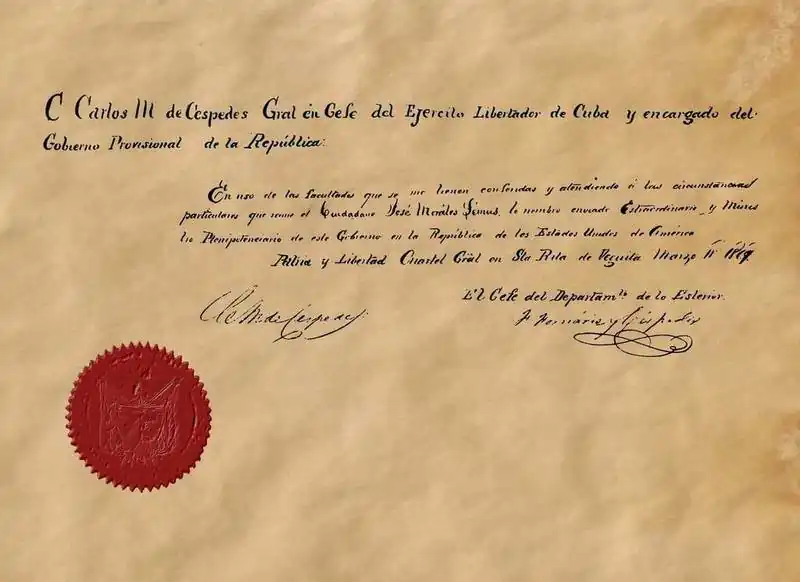 C Carlos M de Cespedes Gral en Gefe del Ejercito Libertador de Cuba y encargado del
Gobierno Provisional de la República:
En uso de las facultades que se me tienen conferidas y atendiendo á las circunstancias
particulares que reune el Ciudadano José Morales Lemus, le nombro enviado Extraordinario y Minis
tro Plenipotenciario de este Gobierno en la República de los Estados Unidos de America
Patria y Libertad Cuartel Gral en Sta Rita de Yeguita Marzo 1869
El Gefe del Departamto de lo Esterior.
C M. de Céspedes
F Fornáris y Céspedes